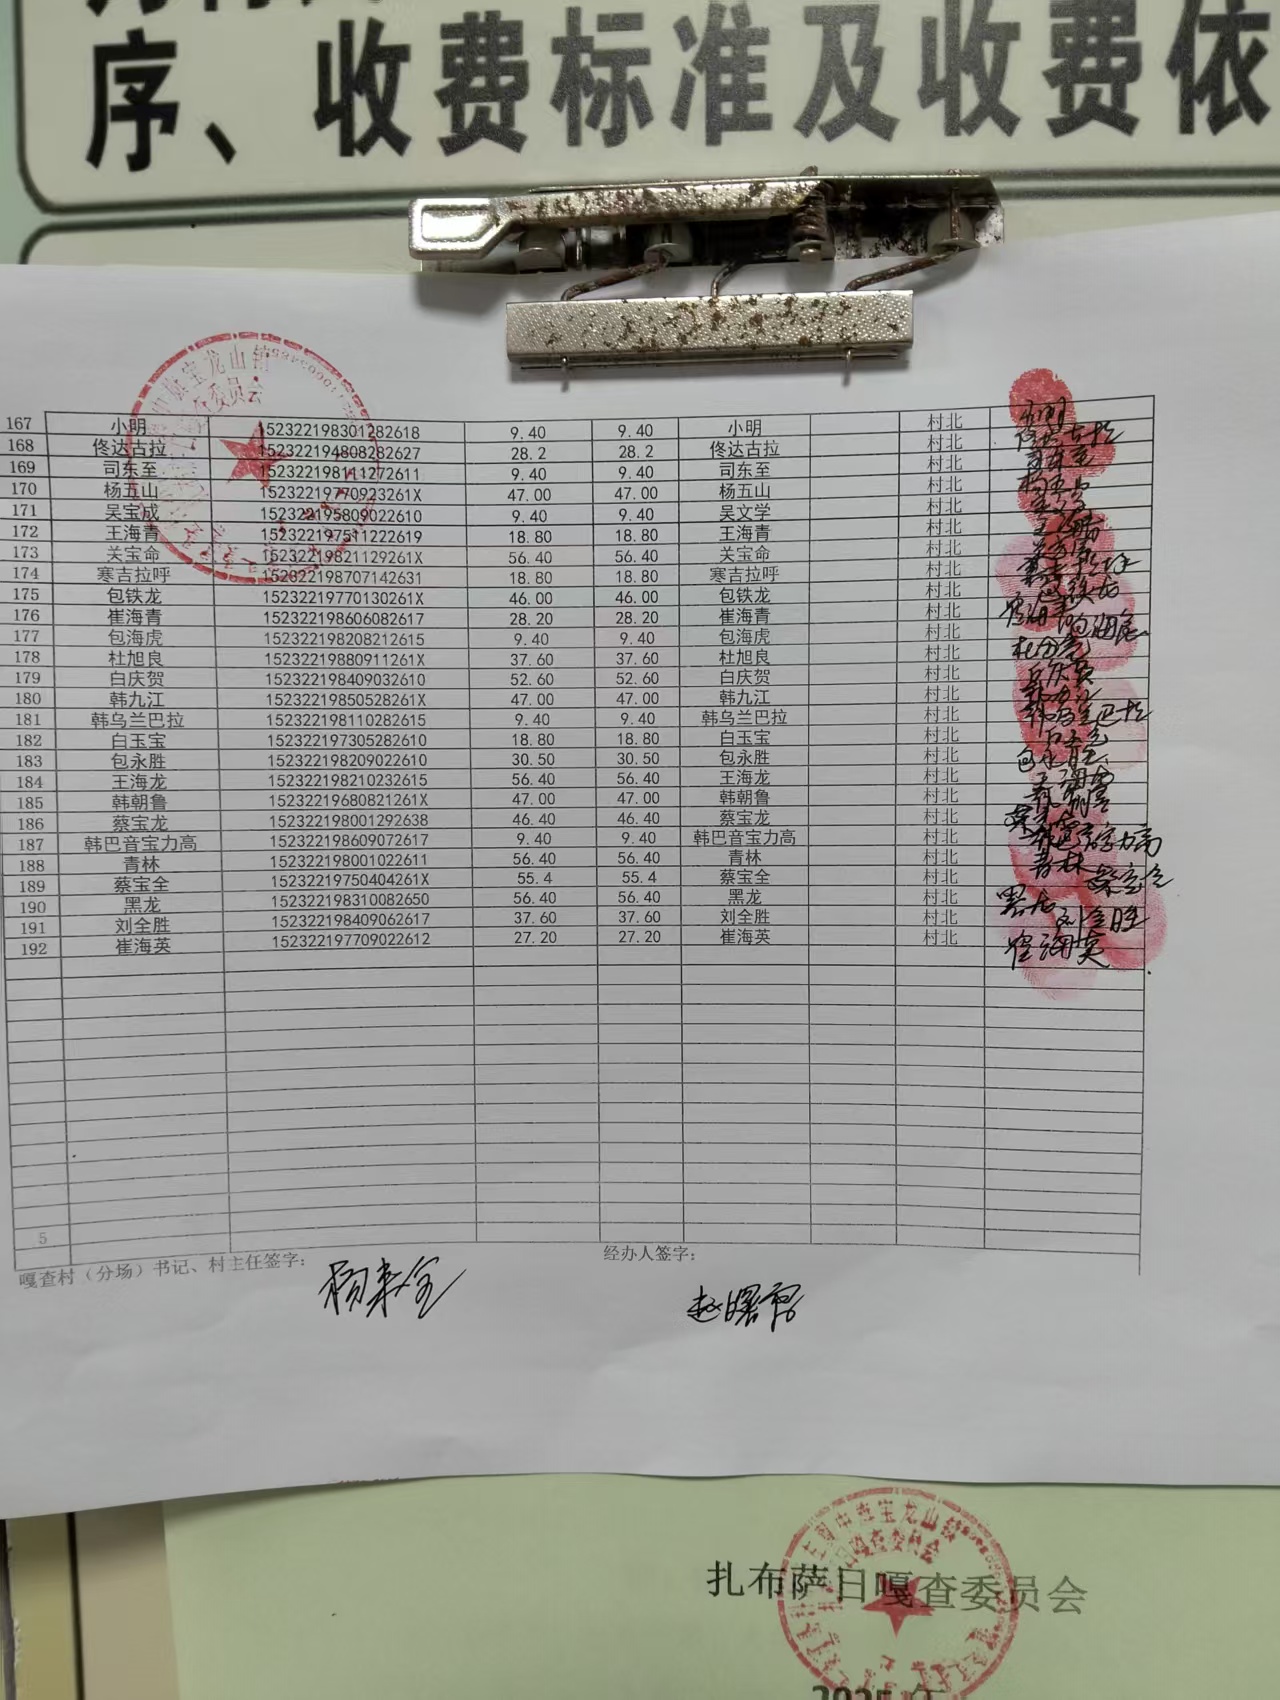 序、收费标准及收费依
167 小明 152322198301282618 9.40 9.40 小明 村北
168 佟达古拉 152322194808282627 28.2 28.2 佟达古拉 村北
169 司东至 152322198111272611 9.40 9.40 司东至 村北
170 杨五山 15232219770923261X 47.00 47.00 杨五山 村北
171 吴宝成 152322195809022610 9.40 9.40 吴文学 村北
172 王海青 152322197511222619 18.80 18.80 王海青 村北
173 关宝命 15232219821129261X 56.40 56.40 关宝命 村北
174 寒吉拉呼 152322198707142631 18.80 18.80 寒吉拉呼 村北
175 包铁龙 15232219770130261X 46.00 46.00 包铁龙 村北
176 崔海青 152322198606082617 28.20 28.20 崔海青 村北
177 包海虎 152322198208212615 9.40 9.40 包海虎 村北
178 杜旭良 15232219880911261X 37.60 37.60 杜旭良 村北
179 白庆贺 152322198409032610 52.60 52.60 白庆贺 村北
180 韩九江 15232219850528261X 47.00 47.00 韩九江 村北
181 韩乌兰巴拉 152322198110282615 9.40 9.40 韩乌兰巴拉 村北
182 白玉宝 152322197305282610 18.80 18.80 白玉宝 村北
183 包永胜 152322198209022610 30.50 30.50 包永胜 村北
184 王海龙 152322198210232615 56.40 56.40 王海龙 村北
185 韩朝鲁 15232219680821261X 47.00 47.00 韩朝鲁 村北
186 蔡宝龙 152322198001292638 46.40 46.40 蔡宝龙 村北
187 韩巴音宝力高 152322198609072617 9.40 9.40 韩巴音宝力高 村北
188 青林 152322198001022611 56.40 56.40 青林 村北 青林
189 蔡宝全 15232219750404261X 55.4 55.4 蔡宝全 村北 蔡宝全
190 黑龙 152322198310082650 56.40 56.40 黑龙 村北 黑龙
191 刘全胜 152322198409062617 37.60 37.60 刘全胜 村北 刘全胜
192 崔海英 152322197709022612 27.20 27.20 崔海英 村北 崔海英
5
嘎查村（分场）书记、村主任签字： 经办人签字：
扎布萨日嘎查委员会
2025年